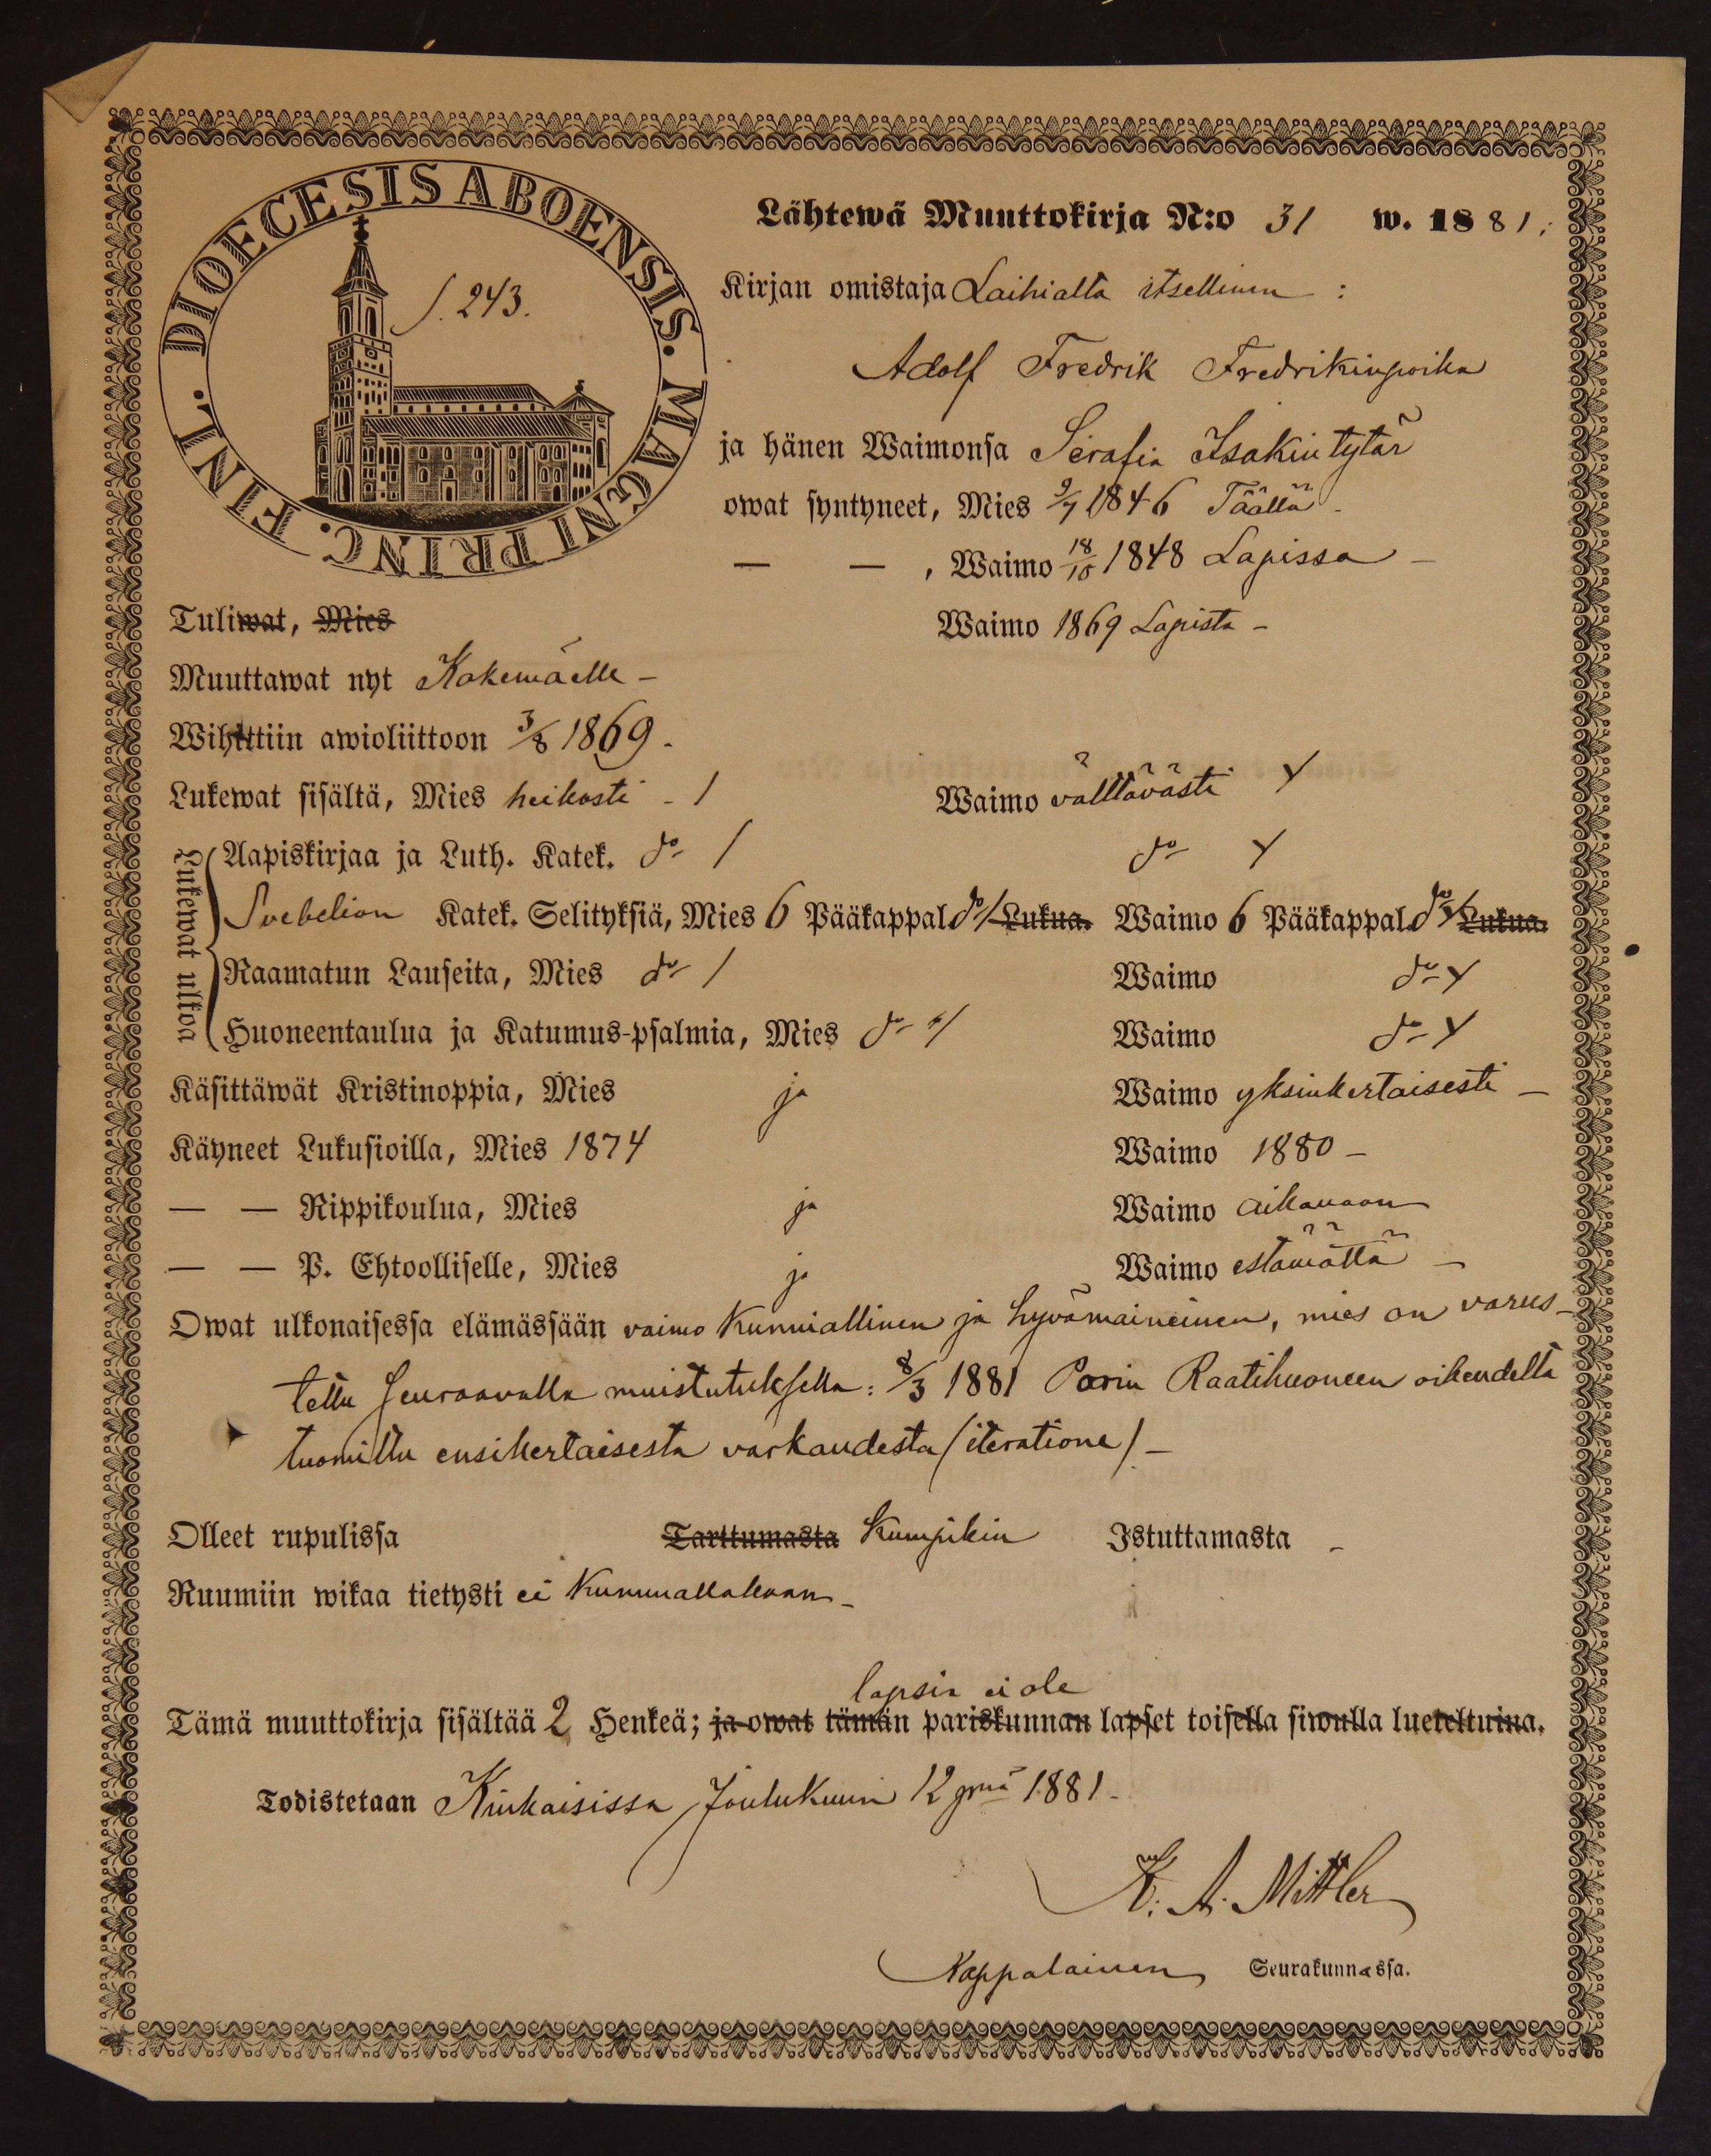 DIOECESIS ABOENSIS. MAGNI PRINC. FINL.
S. 243.
Lähtewä Muuttokirja N:o 31 w. 1881,
Kirjan omistaja Laihialta itsellinen :
Adolf Fredrik Fredrikinpoika
ja hänen Waimonsa Serafia Isakin tytär
owat syntyneet, Mies 9/7 1846 Täällä -
— — , Waimo 18/10 1848 Lapissa -
Tuliwat, Mies Waimo 1869 Lapista -
Muuttawat nyt Kokemäelle -
Wihittiin awioliittoon 3/8 1869 -
Lukewat sisältä, Mies heikosti - / Waimo välttävästi Y
Lukewat ulkoa
Aapiskirjaa ja Luth. Katek. do / do Y
Svebelion Katek. Selityksiä, Mies 6 Pääkappal. do / Lukua. Waimo 6 Pääkappal. do Y Lukua.
Raamatun Lauseita, Mies do / Waimo do Y
Huoneentaulua ja Katumus-psalmia, Mies do / Waimo do Y
Käsittäwät Kristinoppia, Mies ja Waimo yksinkertaisesti -
Käyneet Lukusioilla, Mies 1874 Waimo 1880 -
— — Rippikoulua, Mies ja Waimo aikanaan
— — P. Ehtoolliselle, Mies ja Waimo estämättä -
Owat ulkonaisessa elämässään vaimo kunniallinen ja hyvämaineinen, mies on varus-
tettu seuraavalla muistutuksella: 8/3 1881 Porin Raatihuoneen oikeudelta
tuomittu ensikertaisesta varkaudesta (iteratione) -
Olleet rupulissa Tarttumasta Kumpikin Istuttamasta -
Ruumiin wikaa tietysti ei kummallakaan -
lapsia ei ole
Tämä muuttokirja sisältää 2 Henkeä; ja owat tämän pariskunnan lapset toisella siwulla lueteltuina.
Todistetaan Kiukaisissa Joulukuun 12 pnä 1881 -
K. A. Mittler
Kappalainen Seurakunnassa.